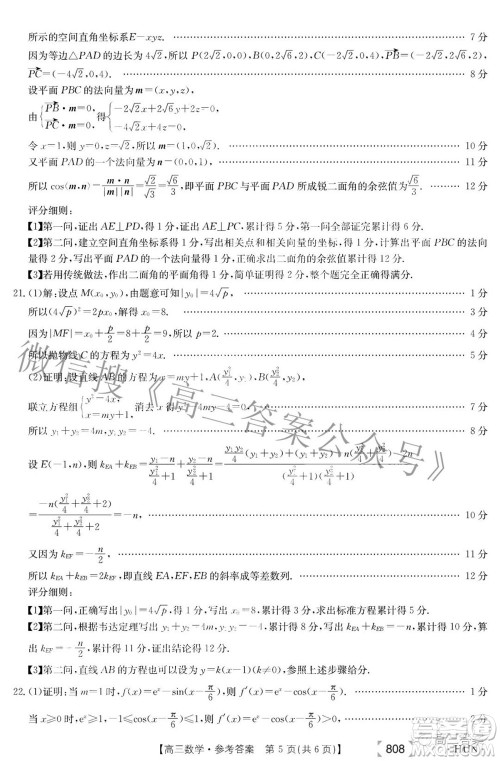 所示的空间直角坐标系E-xyz. 7分
因为等边△PAD的边长为4√2,所以P(2√2,0,0),B(0,2√6,2),C(-2√2,0,4).PB=(-2√2,2√6,2),
PC=(-4√2,0,4). 8分
设平面PBC的法向量为m=(x,y,z),
由{PB·m=0, PC·m=0,得{-2√2x+2√6y+2z=0, -4√2x+4z=0.
令x=1,得y=0,z=√2,所以m=(1,0,√2). 10分
又平面PAD的一个法向量为n=(0,0,1), 11分
所以cos⟨m,n⟩=m·n/|m||n|=√2/√3=√6/3,即平面PBC与平面PAD所成锐二面角的余弦值为√6/3. 12分
评分细则:
【1】第一问,证出AE⊥PD,得1分,证出AE⊥PC,累计得5分,第一问全部证完累计得6分.
【2】第二问,建立空间直角坐标系得1分,写出对应点的坐标,累计得2分,计算出平面PBC与平面PAD的法向量得4分,正确求出二面角的余弦值累计得12分.
【3】若用传统做法,作出二面角的平面角并简单证明得3分,算出最后答案得满分.
21.(1)解:设点M(x₀,y₀),由题意可知|y₀|=4√p, 1分
所以(4√p)²=2px₀,解得x₀=8. 3分
因为|MF|=x₀+p/2=8+p/2=9,所以p=2. 4分
所以抛物线C的方程为y²=4x. 5分
(2)证明:设直线AB的方程为x=my+1,A(y₁²/4,y₁),B(y₂²/4,y₂),
联立方程组{y²=4x, x=my+1,消去x得y²-4my-4=0,
所以y₁+y₂=4m,y₁y₂=-4. 8分
设E(-1,n),则k_EA+k_EB=
=-n(y₁²/4+y₂²/4+2)/(y₁²/4+y₂²/4+2)= 10分
又因为k_EF=-n/2, 11分
所以k_EA+k_EB=2k_EF,即直线EA,EF,EB的斜率成等差数列. 12分
评分细则:
【1】第一问,正确写出|y₀|=4√p,得1分,写出x₀=8,累计得3分,求出标准方程累计得5分.
【2】第二问,根据韦达定理写到y₁+y₂=4m,y₁y₂=-4,累计得8分,直到正确写完步骤累计得12分.
【3】第二问,直线AB的方程也可以设为y=k(x-1)(k≠0),根据步骤给分.
22.(1)证明:当m=1时,f(x)=eˣ-sin(x-π/6), 1分
当x≥0时,eˣ≥1,-1≤sin(x-π/6)≤1,则eˣ-sin(x-π/6)≥0. 2分
【高三数学·参考答案 第5页(共6页)】 808 HUN
微信搜《高三答案公众号》